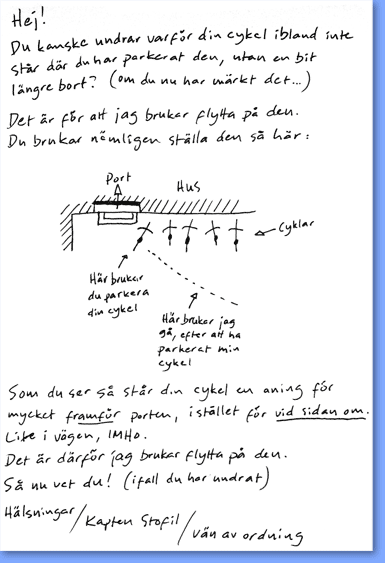 Hej!
Du kanske undrar varför din cykel ibland inte
står där du har parkerat den, utan en bit
längre bort? (om du nu har märkt det...)
Det är för att jag brukar flytta på den.
Du brukar nämligen ställa den så här:
Port
HUS
Cyklar
Här brukar
du parkera
din cykel
Här brukar jag
gå, efter att ha
parkerat min
cykel
Som du ser så står din cykel en aning för
mycket framför porten, istället för vid sidan om.
Lite i vägen, IMHO.
Det är därför jag brukar flytta på den.
Så nu vet du! (ifall du har undrat)
Hälsningar/Kapten Stofil/vän av ordning